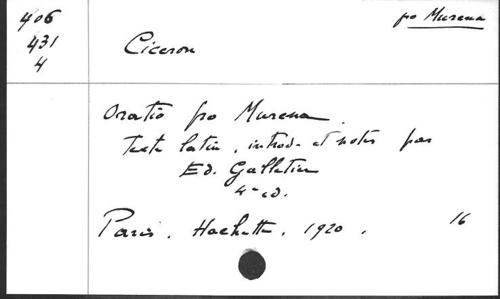 406
431
4
pro Murena
Ciceron
Oratio pro Murena.
Texte latin, introd. et notes par
Ed. Galletier
4e ed.
Paris. Hachette. 1920. 16